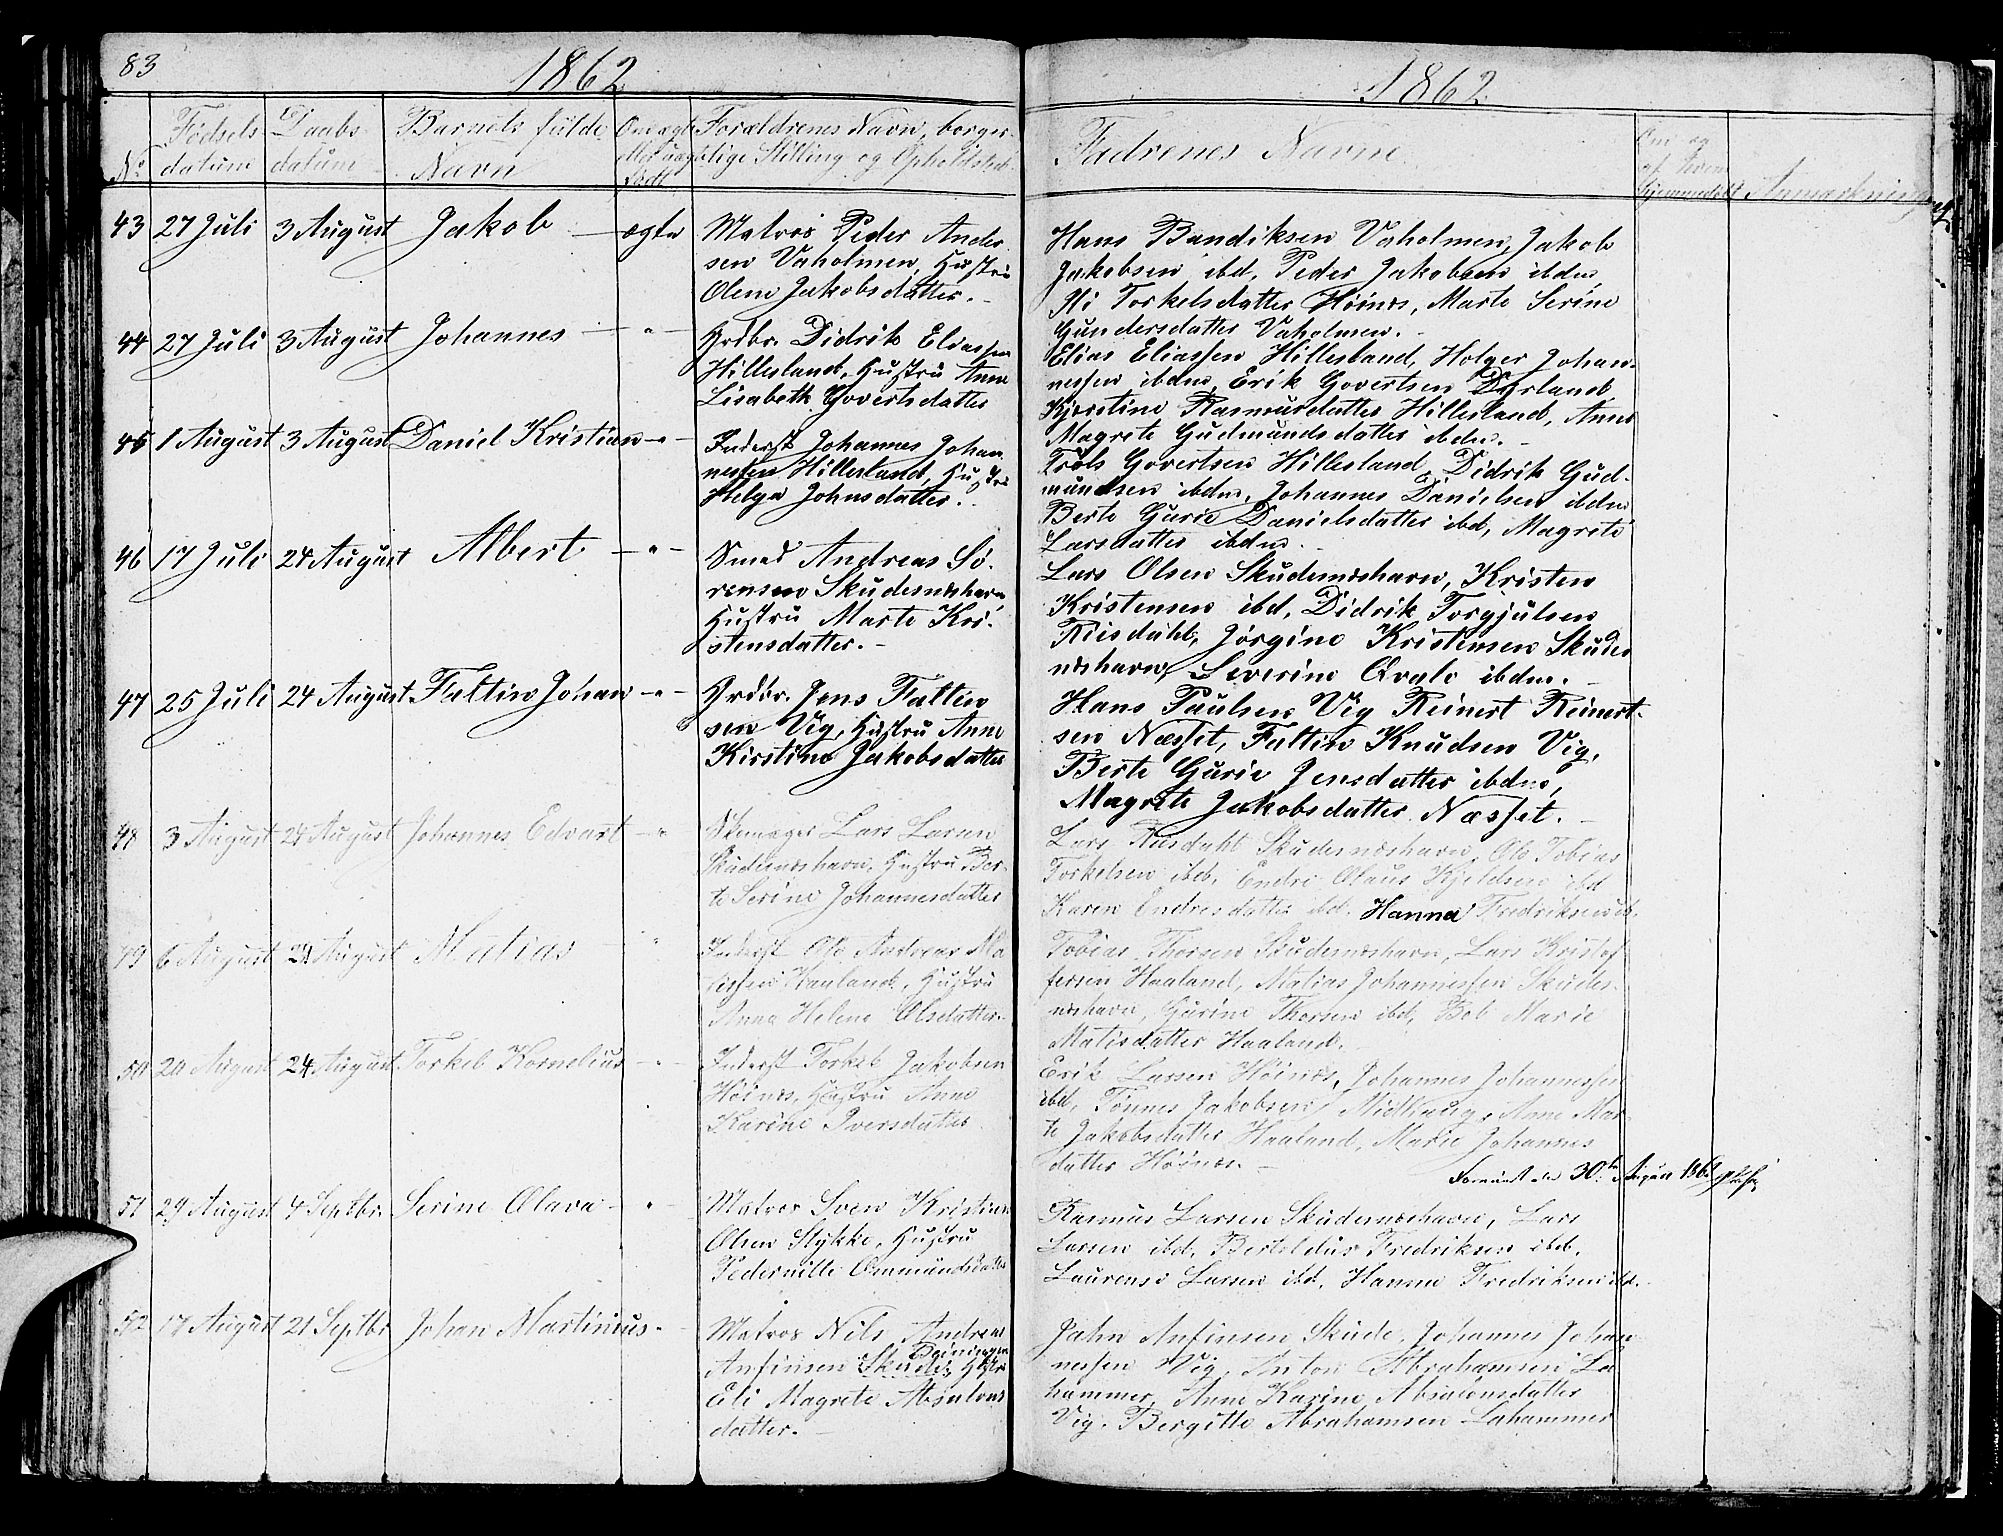 83
1862
1862
Fødsels Daabs Barnets fulde Om ægte Forældrenes Navn, borger-
No datum datum Navn eller uægte lige Stilling og Opholdsted
født
Fadrenes Navne
Om og
af hvem
hjemmedøbt Anmærkninger
43 27 Juli 3 August Jakob ægte Matros Peder Ander
sen Vaholmen, Hustru
Olene Jakobsdatter.
Hans Bendiksen Vaholmen, Jakob
Jakobsen ibd, Peder Jakobsen ibdm,
Torkelsdatter Høinæs, Marte Serine
Gundersdatter Vaholmen.
44 27 Juli 3 August Johannes - " - Grdbr. Didrik Eliassen
Hillesland, Hustru Anne
Lisabeth Govertsdatter
Elias Eliassen Hillesland, Holger Johan-
nessen ibdm, Erik Govertsen Dyrland,
Kjerstine Rasmusdatter Hillesland, Anne
Magrete Gudmundsdatter ibdm.
45 1 August 3 August Daniel Kristian - " - Inderst Johannes Johan
nessen Hillesland, Hustru
Helga Johnsdatter.
Trols Govertsen Hillesland, Didrik Gud-
mundsen ibdm, Johannes Danielsen ibdm
Berte Gurie Danielsdatter ibd, Magrete
Larsdatter ibdm.
46 17 Juli 24 August Albert - " - Smed Andreas Sø-
rensen Skudesnæshavn
Hustru Marte Kri-
stensdatter.
Lars Olsen Skudesnæshavn, Kristen
Kristensen ibd, Didrik Torgjulsen
Riisdahl, Jørgine Kristensen Skudes
næshavn, Severine Qvale ibdm.
47 25 Juli 24 August Faltin Johan - " - Grdbr. Jens Faltin
sen Vig, Hustru Anne
Kirstine Jakobsdatter
Hans Paulsen Vig Reinert Reinert-
sen Næsset, Faltin Knudsen Vig,
Berte Gurie Jensdatter ibdm,
Magrete Jakobsdatter Næsset.
48 3 August 24 August Johannes Edvart - " - Lars Larsen
Skudesnæshavn, Hustru Ber-
te Serine Johannesdatter
Lars Riisdahl Skudesnæshavn, Ole Tobias
Torkelsen ibd, Endre Olaus Kjeldsen ibd
Karen Endresdatter ibd. Hanna Fredriksen ib.
49 6 August 24 August Matias " Inderst Ole Andreas Ma
tissen Haaland, Hustru
Anna Helene Olsdatter
Tobias Thorsen Skudesnæshavn, Lars Kristof
fersen Haaland, Matias Johannessen Skudes-
næshavn, Gurine Thorsen ibd, Bol Marie
Matisdatter Haaland.
50 20 August 24 August Torkel Kornelius - " - Inderst Torkel Jakobsen
Høinæs, Hustru Anne
Karine Iversdatter
Erik Larsen Høinæs, Johannes Johannessen
ibd, Tønnes Jakobsen Midhaug, Anne Mar-
te Jakobsdatter Haaland, Marie Johannes
datter Høinæs.
den 30te August 1862
51 29 August 4 Septbr. Serine Olava - " - Matros Sven Kristian
Olsen Stykke, Hustru
Pedernille Ommundsdatter
Rasmus Larsen Skudesnæshavn, Lars
Larsen ibd, Berteldus Fredriksen ibd,
Laurense Larsen ibd, Hanna Fredriksen ibd.
52 17 August 21 Septbr. Johan Martinius " - Matros Nils Andreas
Anfinsen Skude, Hustru
Eli Magrete Absalons
datter.
Jahn Anfinsen Skude, Johannes Johan
nessen Vig, Anton Abrahamsen La
hammer, Anne Karine Absalonsdatter
Vig. Bergitte Abrahamsen Lahammer